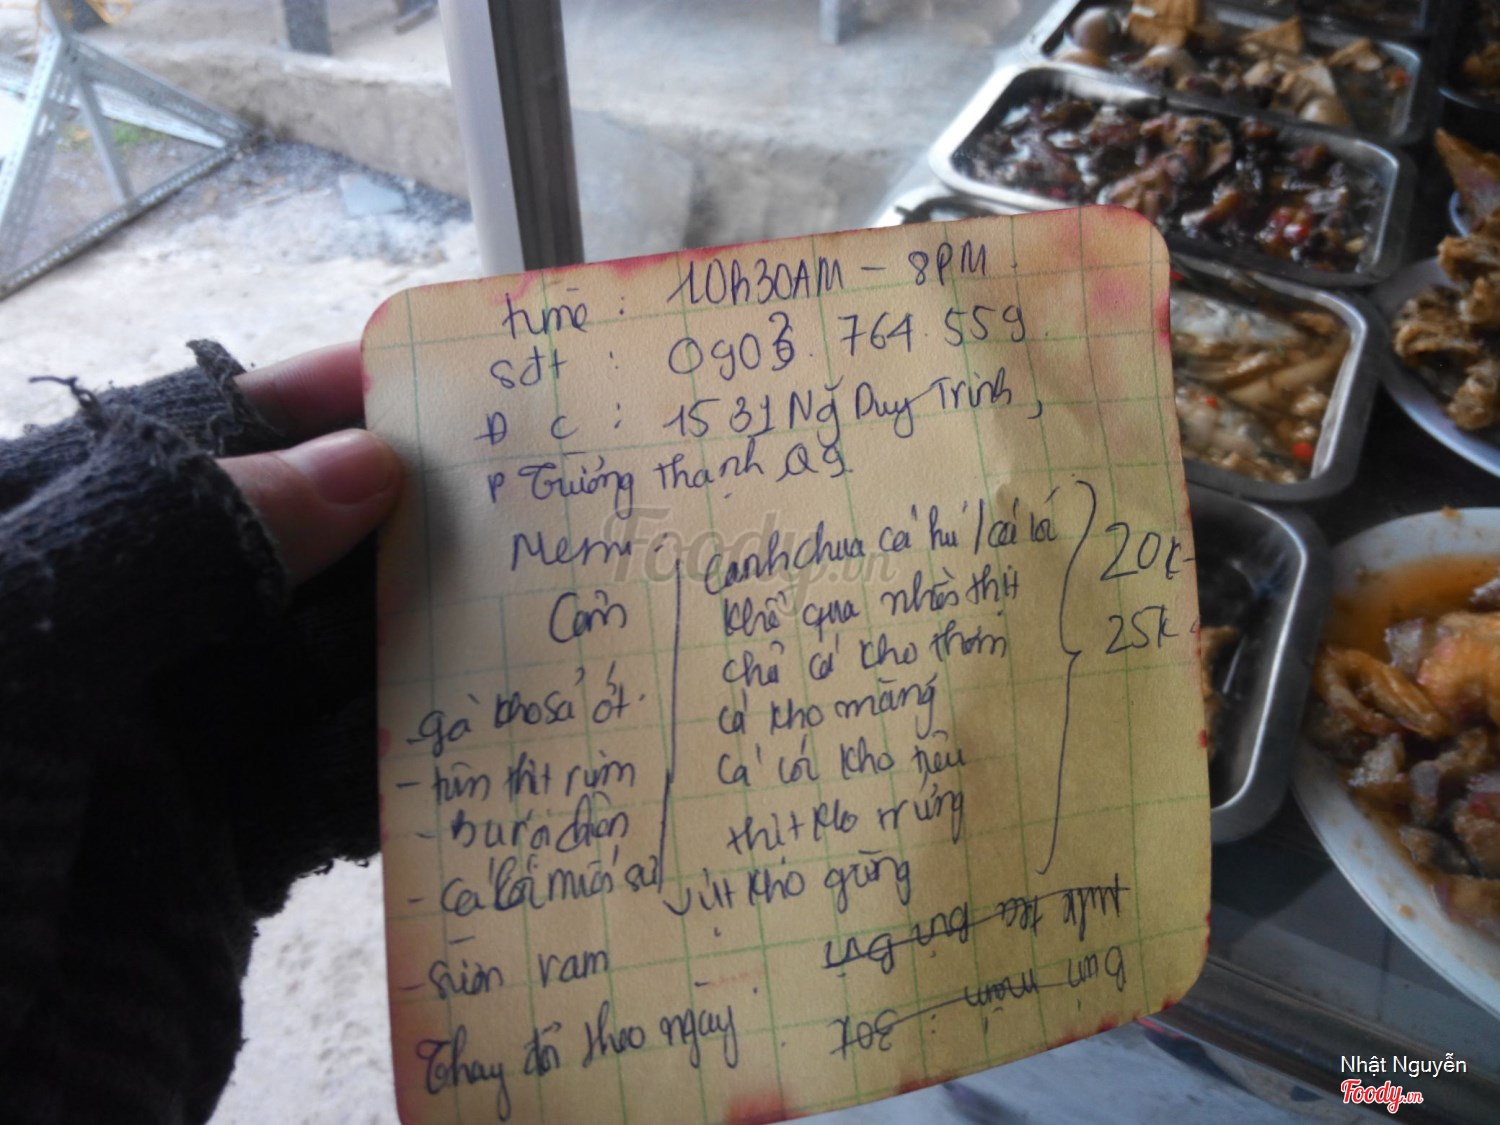 time : 10h30AM - 8PM
sđt : 0903.764.559
Đ C : 1531 Ng Duy Trinh,
P Trường Thạnh Q9.
Menu :
Cơm
- gà kho sả ớt.
- tôm thịt rim
- Ba rọi chiên
- cá lóc muối sả
- sườn ram
Thay đổi theo ngày.
canh chua cá hú / cá lóc
khổ qua nhồi thịt
chả cá kho thơm
cá kho măng
cá lóc kho tiêu
thịt kho trứng
vịt kho gừng
20k -
25k
Bún mắm : 30k
Milk tea
Foody.vn
Nhật Nguyễn
Foody.vn